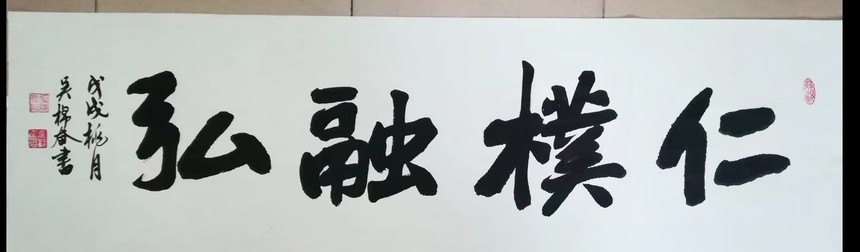 仁樸融弘
戊戌桃月
吳棉春書